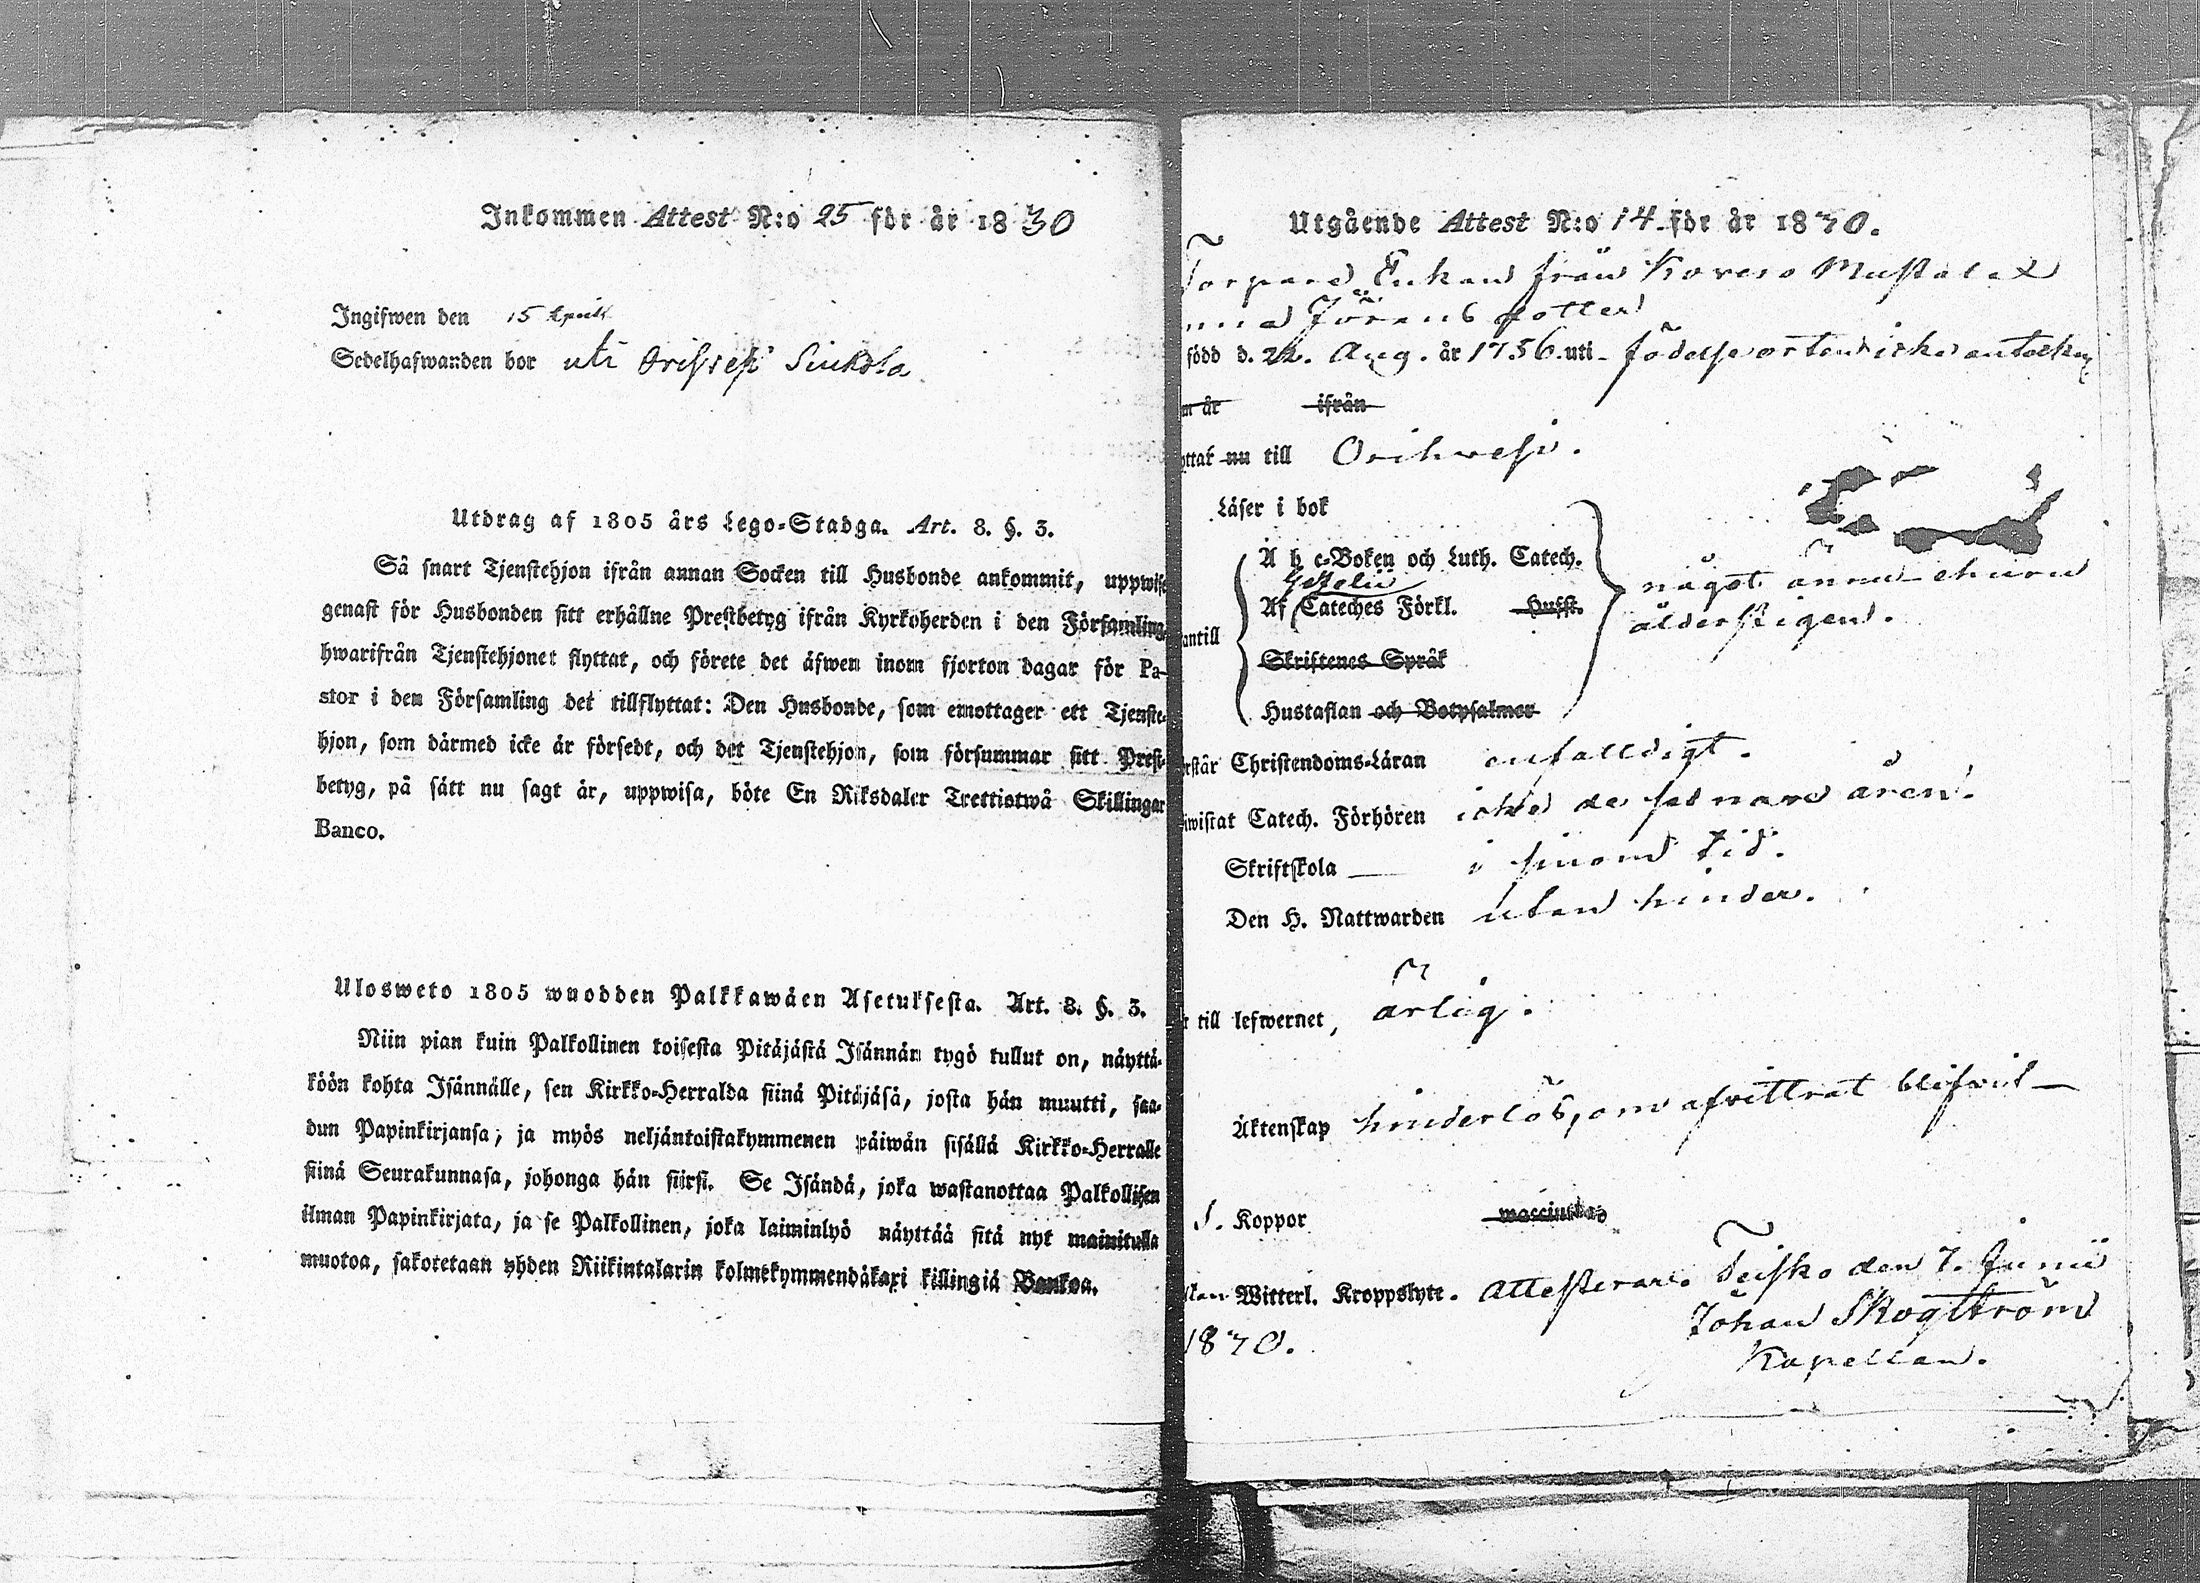 Inkommen Attest N:o 25 för år 1830
Ingifwen den 15 April
Sedelhafwanden bor uti Sinkola
Utdrag af 1805 års Lego-Stadga. Art. 8. §. 3.
Så snart Tjenstehjon ifrån annan Socken till Husbonde ankommit, uppwise
genast för Husbonden sitt erhållne Prestbetyg ifrån Kyrkoherden i den Församling
hwarifrån Tjenstehjonet flyttat, och förete det äfwen inom fjorton dagar för Pa-
stor i den Församling det tillflyttat: Den Husbonde, som emottager ett Tjenste-
hjon, som därmed icke är försedt, och det Tjenstehjon, som försummar sitt Prest-
betyg, på sätt nu sagt är, uppwisa, böte En Riksdaler Trettiotwå Skillingar
Banco.
Ulosweto 1805 wuodden Palkkawäen Asetuksesta. Art. 8. §. 3.
Niin pian kuin Palkollinen toisesta Pitäjästä Isännän tygö tullut on, näyttä-
köön kohta Isännälle, sen Kirkko-Herralda siinä Pitäjäsä, josta hän muutti, saa-
dun Papinkirjansa; ja myös neljäntoistakymmenen päiwän sisällä Kirkko-Herralle
siinä Seurakunnasa, johonga hän siirsi. Se Isändä, joka wastanottaa Palkollisen
ilman Papinkirjata, ja se Palkollinen, joka laiminlyö näyttää sitä nyt mainitulla
muotoa, sakotetaan yhden Riikintalarin kolmekymmendäkaxi killingiä Bankoa.
Utgående Attest N:o 14 för år 1830.
Torpare Enkan från Kovero Mustalax
Jörans dotter
född d. 22. Aug. år 1756 uti födelseorten icke anteckn
m år ifrån
ttat nu till Orihvesi.
Läser i bok
A b c-Boken och Luth. Catech.
Gezelii
Af Cateches Förkl. Hufst.
något ännu ehuru
ålderstigen.
antill
Skriftenes Språk
Hustaflan och Botpsalmer
rstår Christendoms-Läran enfalldigt.
iwistat Catech. Förhören icke de sednare åren.
Skriftskola i sinom tid.
Den H. Nattwarden utan hinder.
r till lefwernet, ärlig.
Äktenskap hinderlös, om afvittrat blifvit
Koppor vaccinerad
Witterl. Kroppslyte. Attesterar. Teisko den 7. Junii
1830.
Johan Skogström
Kapellan.